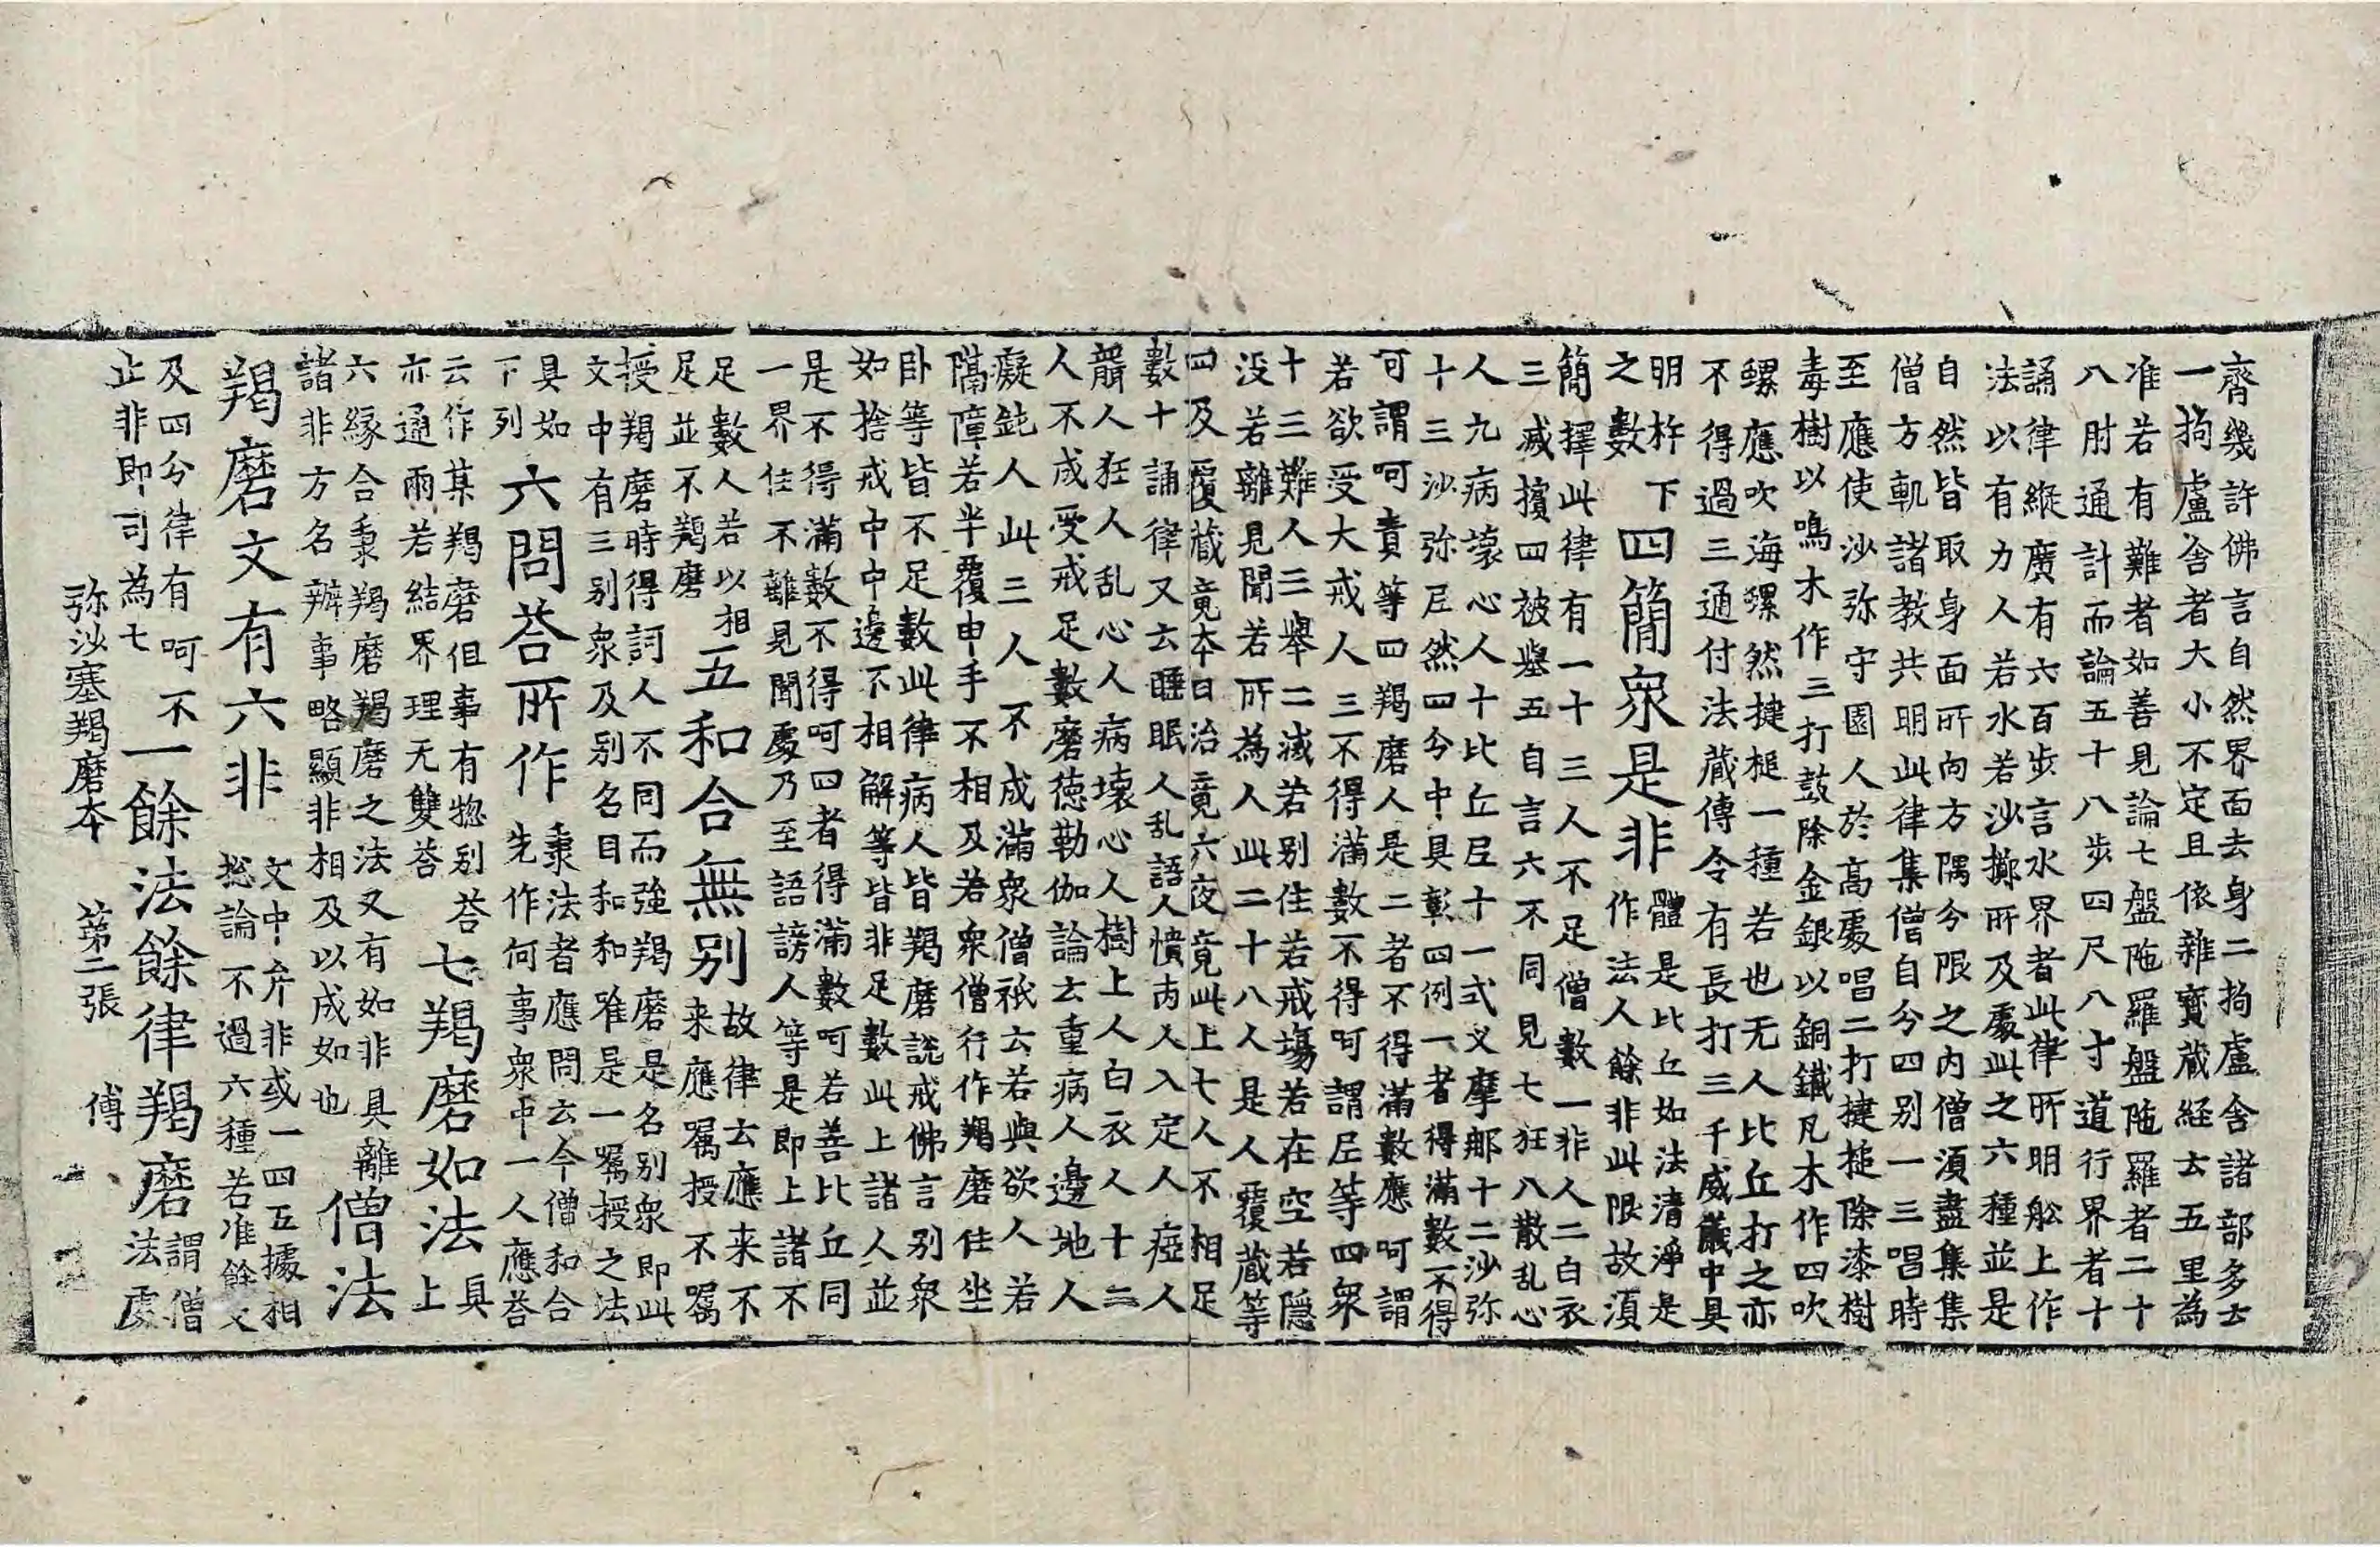 齊幾許佛言自然界面去身二拘盧舍諸部多云
一拘盧舍者大小不定且依雜寶藏経云五里為
准若有難者如善見論七盤陁羅盤陁羅者二十
八肘通計而論五十八步四尺八寸道行界者十
誦律縱廣有六百步言水界者此律所明舩上作
法以有力人若水若沙擲所及處此之六種並是
自然皆取身面所向方隅分限之內僧湏盡集集
僧方軌諸教共明此律集僧自分四别一三唱時
至應使沙弥守園人於高處唱二打揵搥除漆樹
毒樹以鳴木作三打鼓除金銀以銅鐵凡木作四吹
螺應吹海螺然揵槌一種若也无人比丘打之亦
不得過三通付法藏傳令有長打三千威儀中具
明杵下
之數
四簡衆是非
體是比丘如法清淨是
作法人餘非此限故湏
簡擇此律有一十三人不足僧數一非人二白衣
三滅擯四被舉五自言六不同見七狂八散乱心
人九病壞心人十比丘尼十一式叉摩郍十二沙弥
十三沙弥尼然四分中具彰四例一者得滿數不得
可謂呵責等四羯磨人是二者不得滿數應呵謂
若欲受大戒人三不得滿數不得呵謂尼等四衆
十三難人三舉二滅若别住若戒場若在空若隱
没若離見聞若所為人此二十八人是人覆藏等
四及覆藏竟本日治竟六夜竟此上七人不相足
數十誦律又云睡眠人乱語人憒内人入定人瘂人
聾人狂人乱心人病壞心人樹上人白衣人十二
人不成受戒足數磨德勒伽論云重病人邊地人
癡鈍人此三人不成滿衆僧祇云若與欲人若
隔障若半覆申手不相及若衆僧行作羯磨住坐
卧等皆不足數此律病人皆羯磨説戒佛言别衆
如捨戒中中邊不相解等皆非足數此上諸人並
是不得滿數不得呵四者得滿數呵若善比丘同
一界住不離見聞處乃至語謗人等是即上諸不
足數人若以相
足並不羯磨
五和合無别
故律云應来不
来應囑授不囑
授羯磨時得訶人不同而強羯磨是名别衆即此
文中有三别衆及别名目和和唯是一囑授之法
具如
下列
六問荅所作
秉法者應問云今僧和合
先作何事衆中一人應荅
云作某羯磨但事有惣别荅
亦通兩若結界理无雙荅
七羯磨如法
具
上
六緣合秉羯磨羯磨之法又有如非具離
諸非方名辦事略顯非相及以成如也
僧法
羯磨文有六非
文中弁非或一四五據相
捴論不過六種若准餘文
及四分律有呵不
止非即司為七
一餘法餘律羯磨
謂僧
法處
弥沙塞羯磨本 第二張 傅